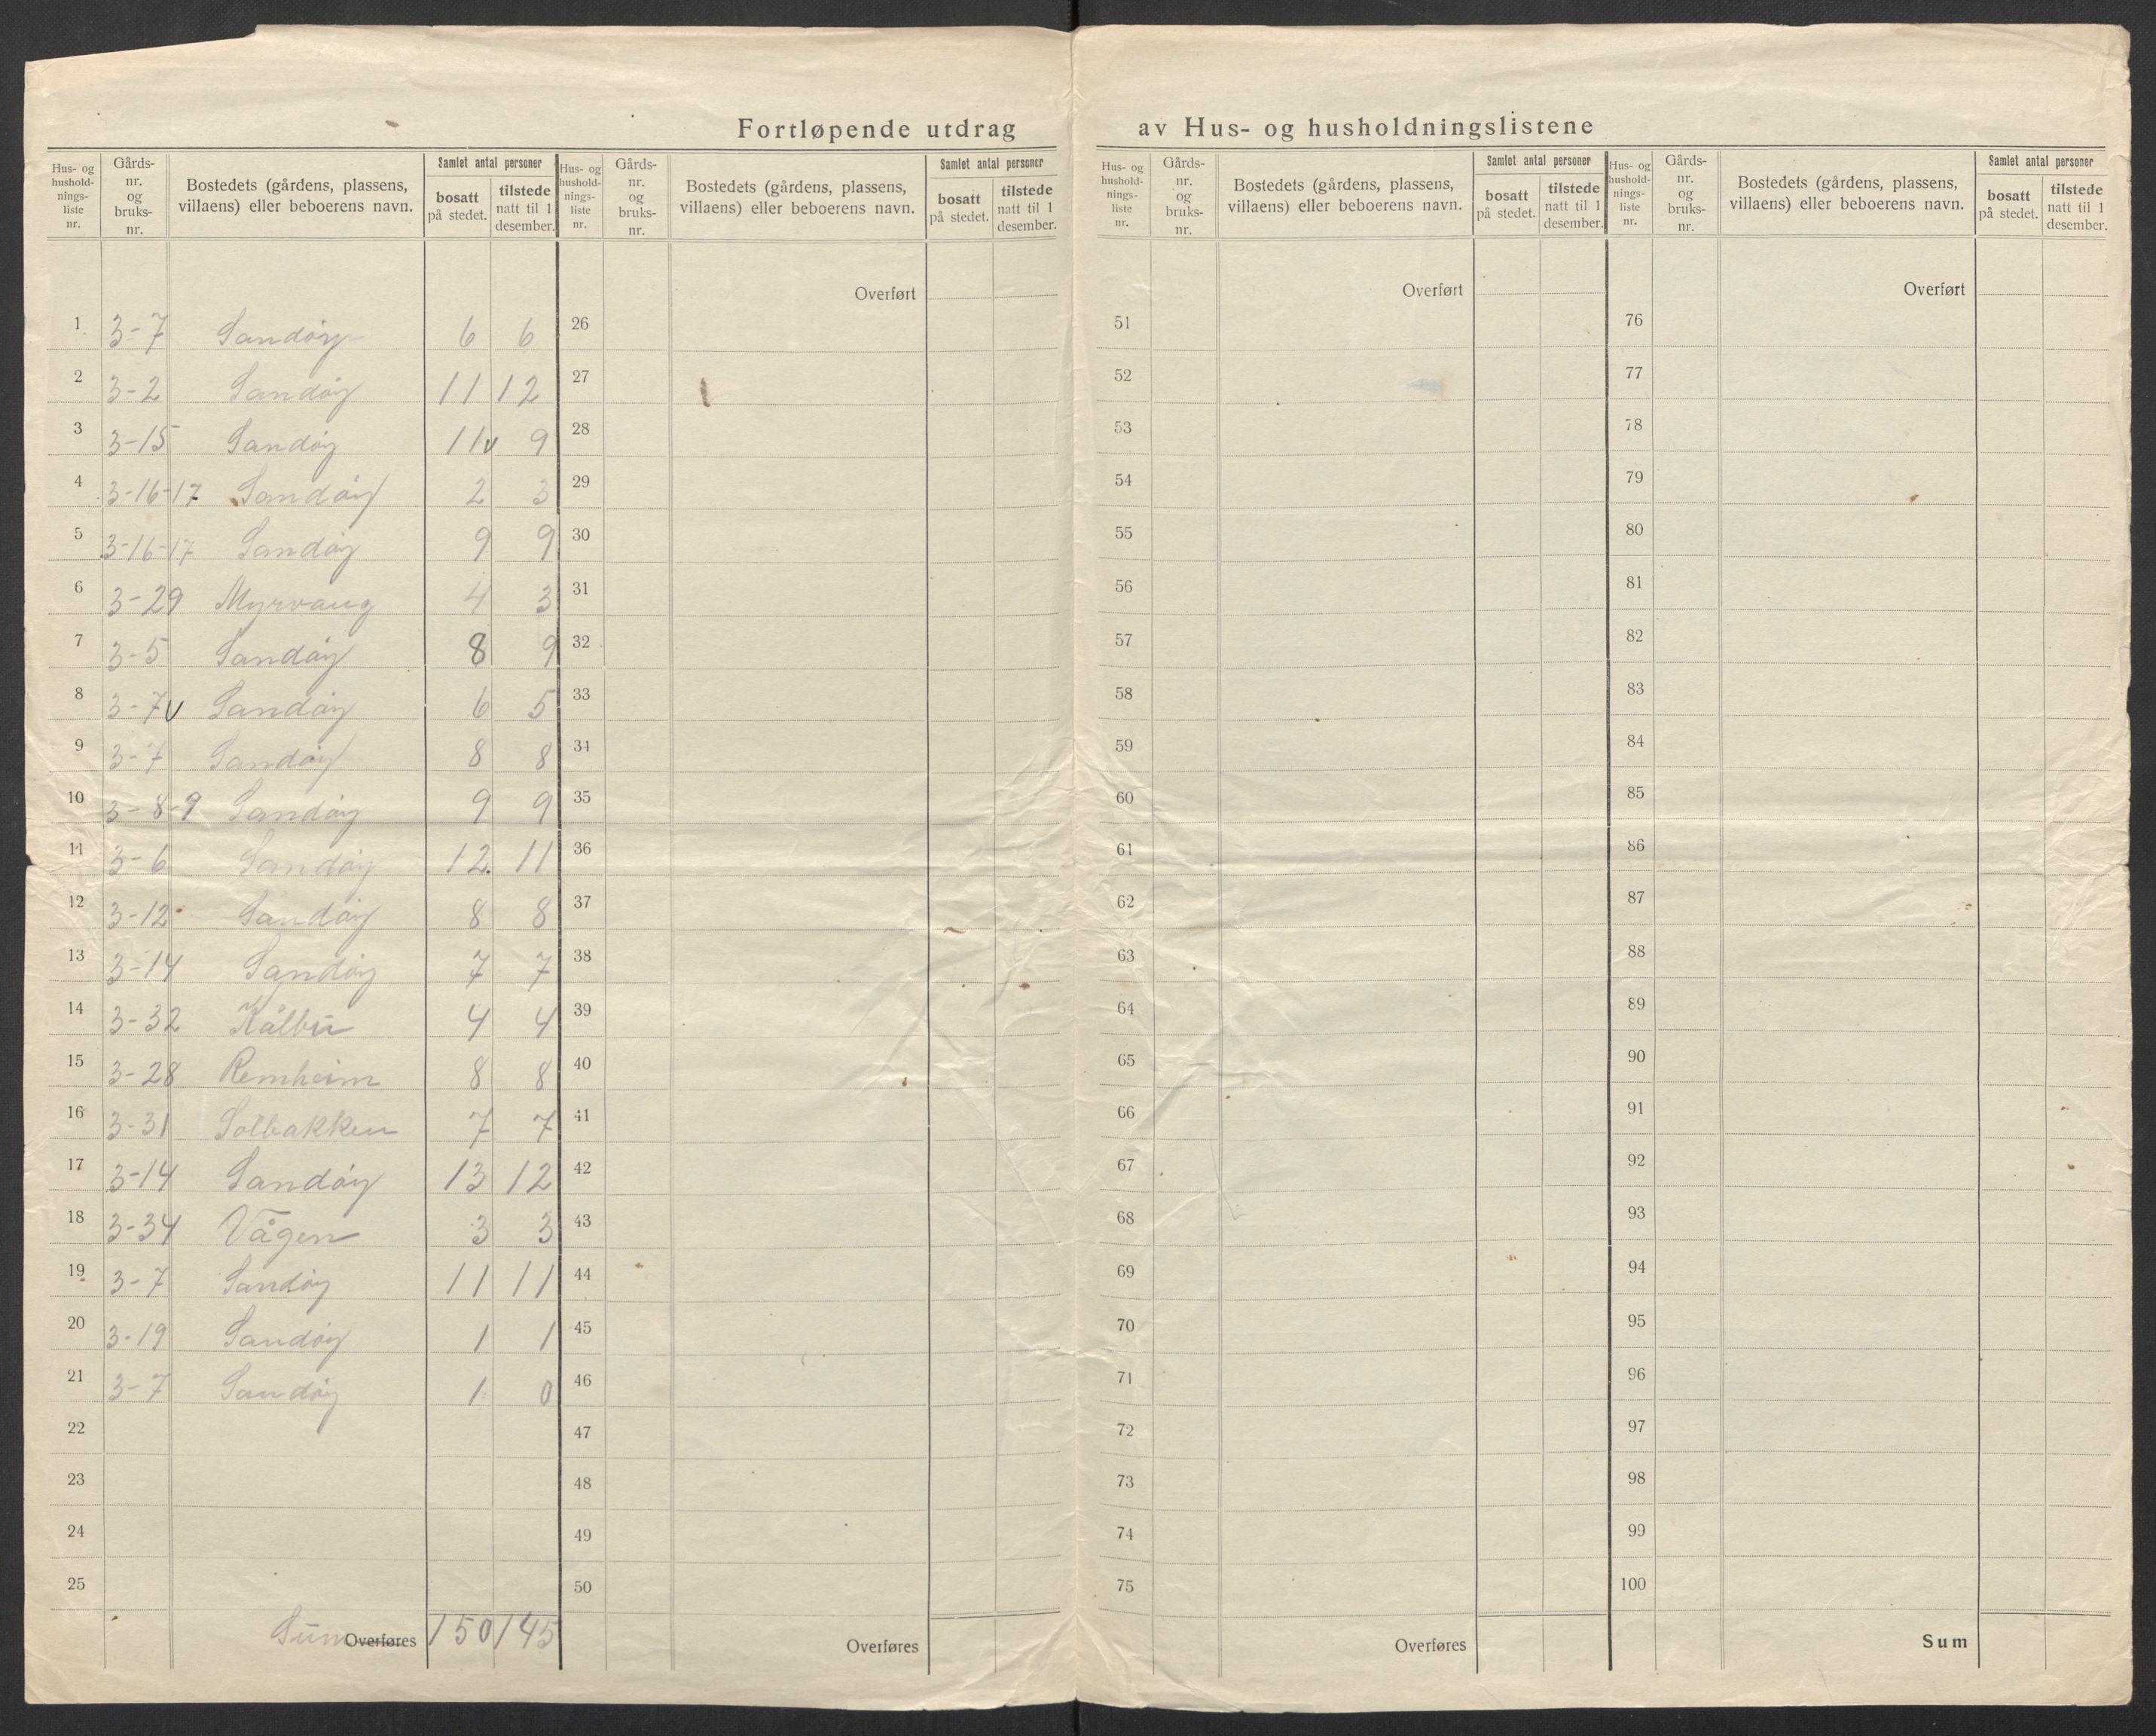 Fortløpende utdrag av Hus- og husholdningslistene
Hus- og hushold-nings-liste nr. Gårds-nr. og bruks-nr. Bostedets (gårdens, plassens, villaens) eller beboerens navn. Samlet antal personer bosatt på stedet. tilstede natt til 1 desember.
1 3-7 Sandøy 6 6
2 3-2 Sandøy 11 12
3 3-15 Sandøy 11v 9
4 3-16-17 Sandøy 2 3
5 3-16-17 Sandøy 9 9
6 3-29 Myrvang 4 3
7 3-5 Sandøy 8 9
8 3-7v Sandøy 6 5
9 3-7 Sandøy 8 8
10 3-8-9 Sandøy 9 9
11 3-6 Sandøy 12. 11
12 3-12 Sandøy 8 8
13 3-14 Sandøy 7 7
14 3-32 Kålbu 4 4
15 3-28 Remheim 8 8
16 3-31 Solbakken 7 7
17 3-14 Sandøy 13 12
18 3-34 Vågen 3 3
19 3-7 Sandøy 11 11
20 3-19 Sandøy 1 1
21 3-7 Sandøy 1 0
22
23
24
25
Sum Overføres 150 145
Hus- og hushold-nings-liste nr. Gårds-nr. og bruks-nr. Bostedets (gårdens, plassens, villaens) eller beboerens navn. Samlet antal personer bosatt på stedet. tilstede natt til 1 desember.
Overført
26
27
28
29
30
31
32
33
34
35
36
37
38
39
40
41
42
43
44
45
46
47
48
49
50
Overføres
Hus- og hushold-nings-liste nr. Gårds-nr. og bruks-nr. Bostedets (gårdens, plassens, villaens) eller beboerens navn. Samlet antal personer bosatt på stedet. tilstede natt til 1 desember.
Overført
51
52
53
54
55
56
57
58
59
60
61
62
63
64
65
66
67
68
69
70
71
72
73
74
75
Overføres
Hus- og hushold-nings-liste nr. Gårds-nr. og bruks-nr. Bostedets (gårdens, plassens, villaens) eller beboerens navn. Samlet antal personer bosatt på stedet. tilstede natt til 1 desember.
Overført
76
77
78
79
80
81
82
83
84
85
86
87
88
89
90
91
92
93
94
95
96
97
98
99
100
Sum